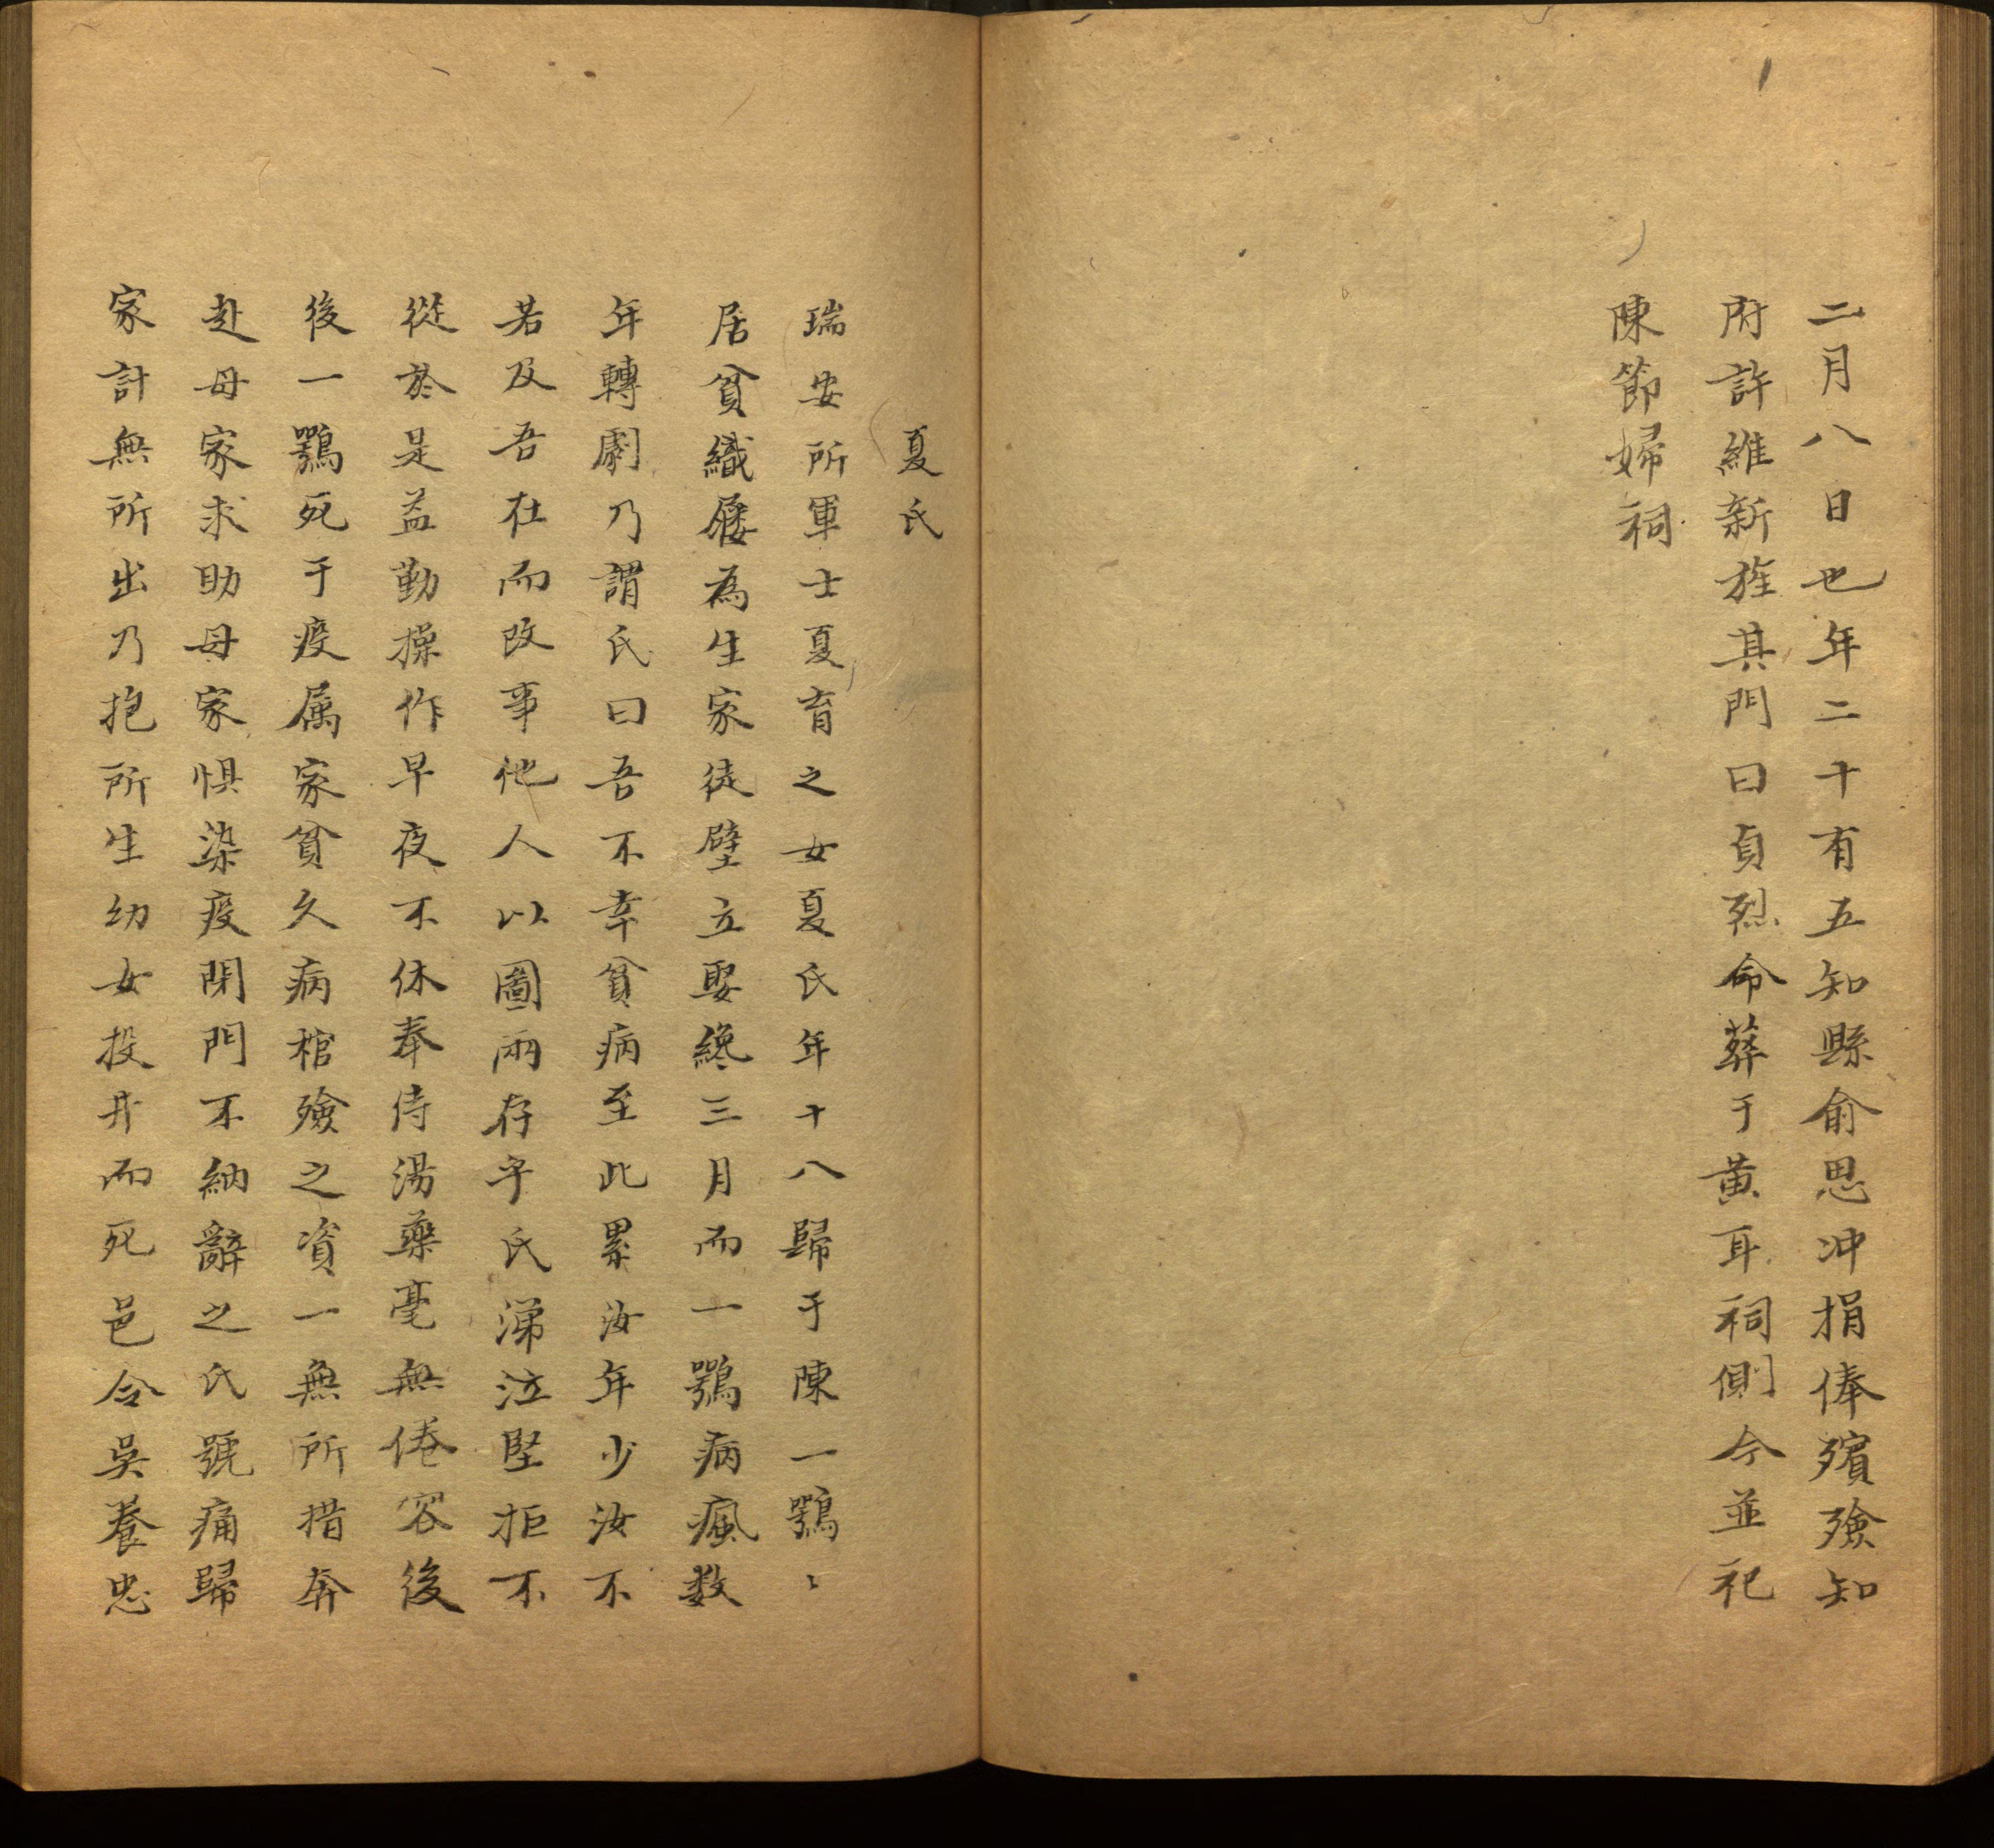 二月八日也年二十有五知縣俞思冲捐俸殯殮知
府許維新旌其門曰貞烈命葬于黃耳祠側今並祀
陳節婦祠
夏氏
瑞安所軍士夏育之女夏氏年十八歸于陳一鶚〻
居貧織屦為生家徒壁立娶纔三月而一鶚病瘋数
年轉劇乃謂氏曰吾不幸貧病至此累汝年少汝不
若及吾在而改事他人以圖兩存乎氏涕泣堅拒不
從於是益勤操作早夜不休奉侍湯藥毫無倦容後
後一鶚死于疫属家貧久病棺殮之資一無所措奔
赴母家求助母家惧染疫閉門不納辭之氏號痛歸
家計無所出乃抱所生幼女投井而死邑令吳養忠